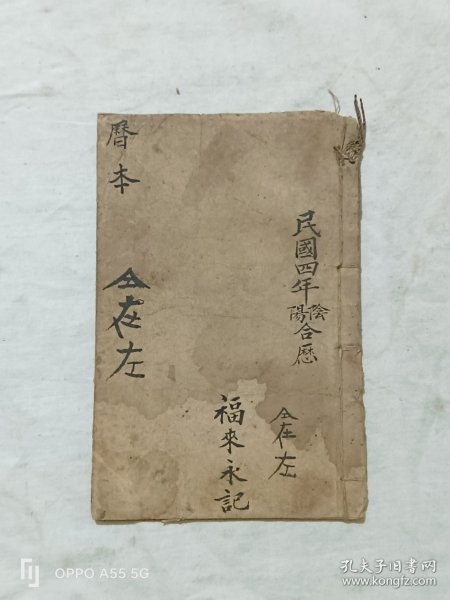 民國四年陰陽合曆
全在左
福來永記
曆本
全在左
OPPO A55 5G
孔夫子旧书网
www.kongfz.com